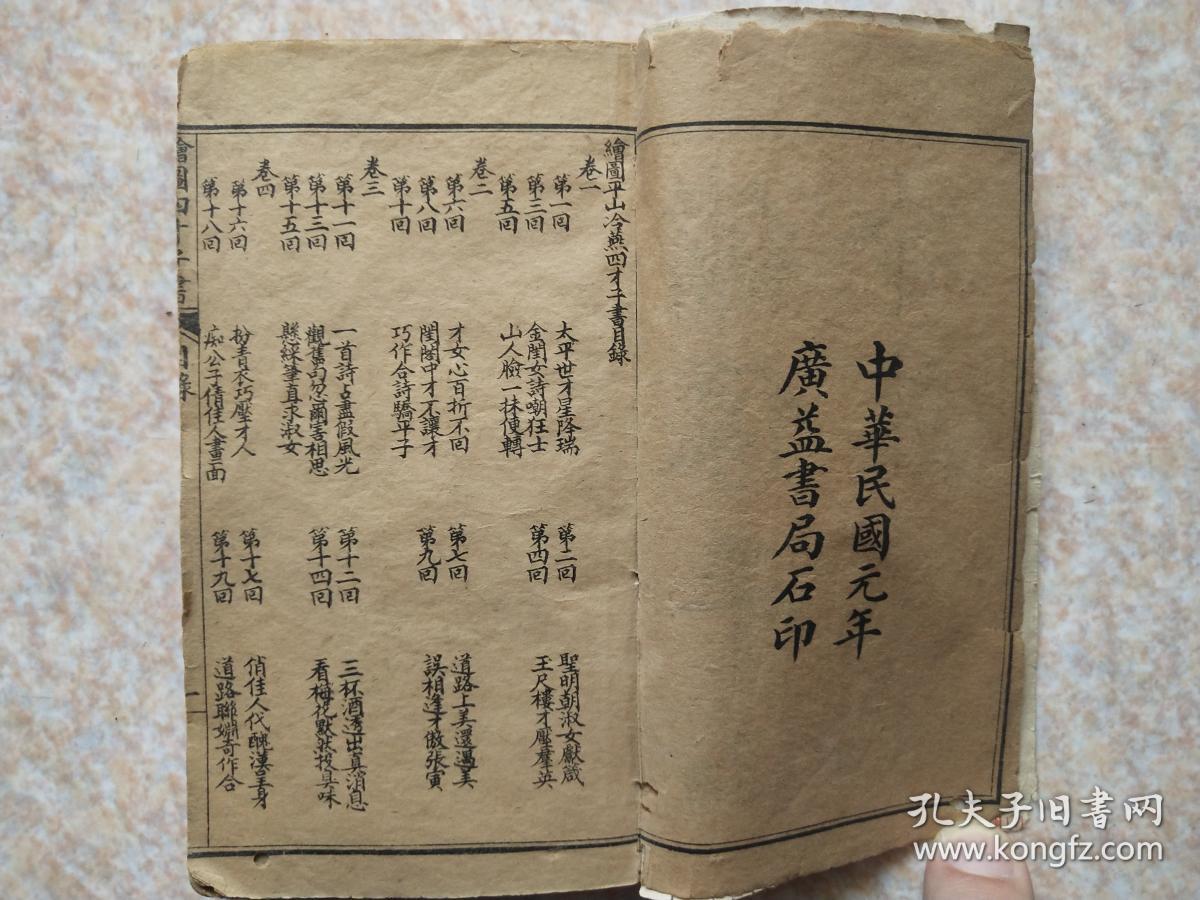 中華民國元年
廣益書局石印
繪圖平山冷燕四才子書目錄
卷一
第一回 太平世才星降瑞 第二回 聖明朝淑女獻箴
第三回 金閨女詩嘲狂士 第四回 玉尺樓才壓羣英
第五回 山人臉一抹便轉
卷二
第六回 才女心百折不回 第七回 道路上美還遇美
第八回 閨閣中才不讓才 第九回 誤相逢才傲張寅
第十回 巧作合詩驕平子
卷三
第十一回 一首詩占盡假風光 第十二回 三杯酒透出真消息
第十三回 觀舊句忽爾害相思 第十四回 看梅花默然投臭味
第十五回 懸綵筆直求淑女
卷四
第十六回 扮青衣巧壓才人 第十七回 俏佳人代醜漢呈身
第十八回 痴公子倩佳人畫面 第十九回 道路聯姻奇作合
繪圖四才子書 目錄 一
孔夫子旧書网
www.kongfz.com